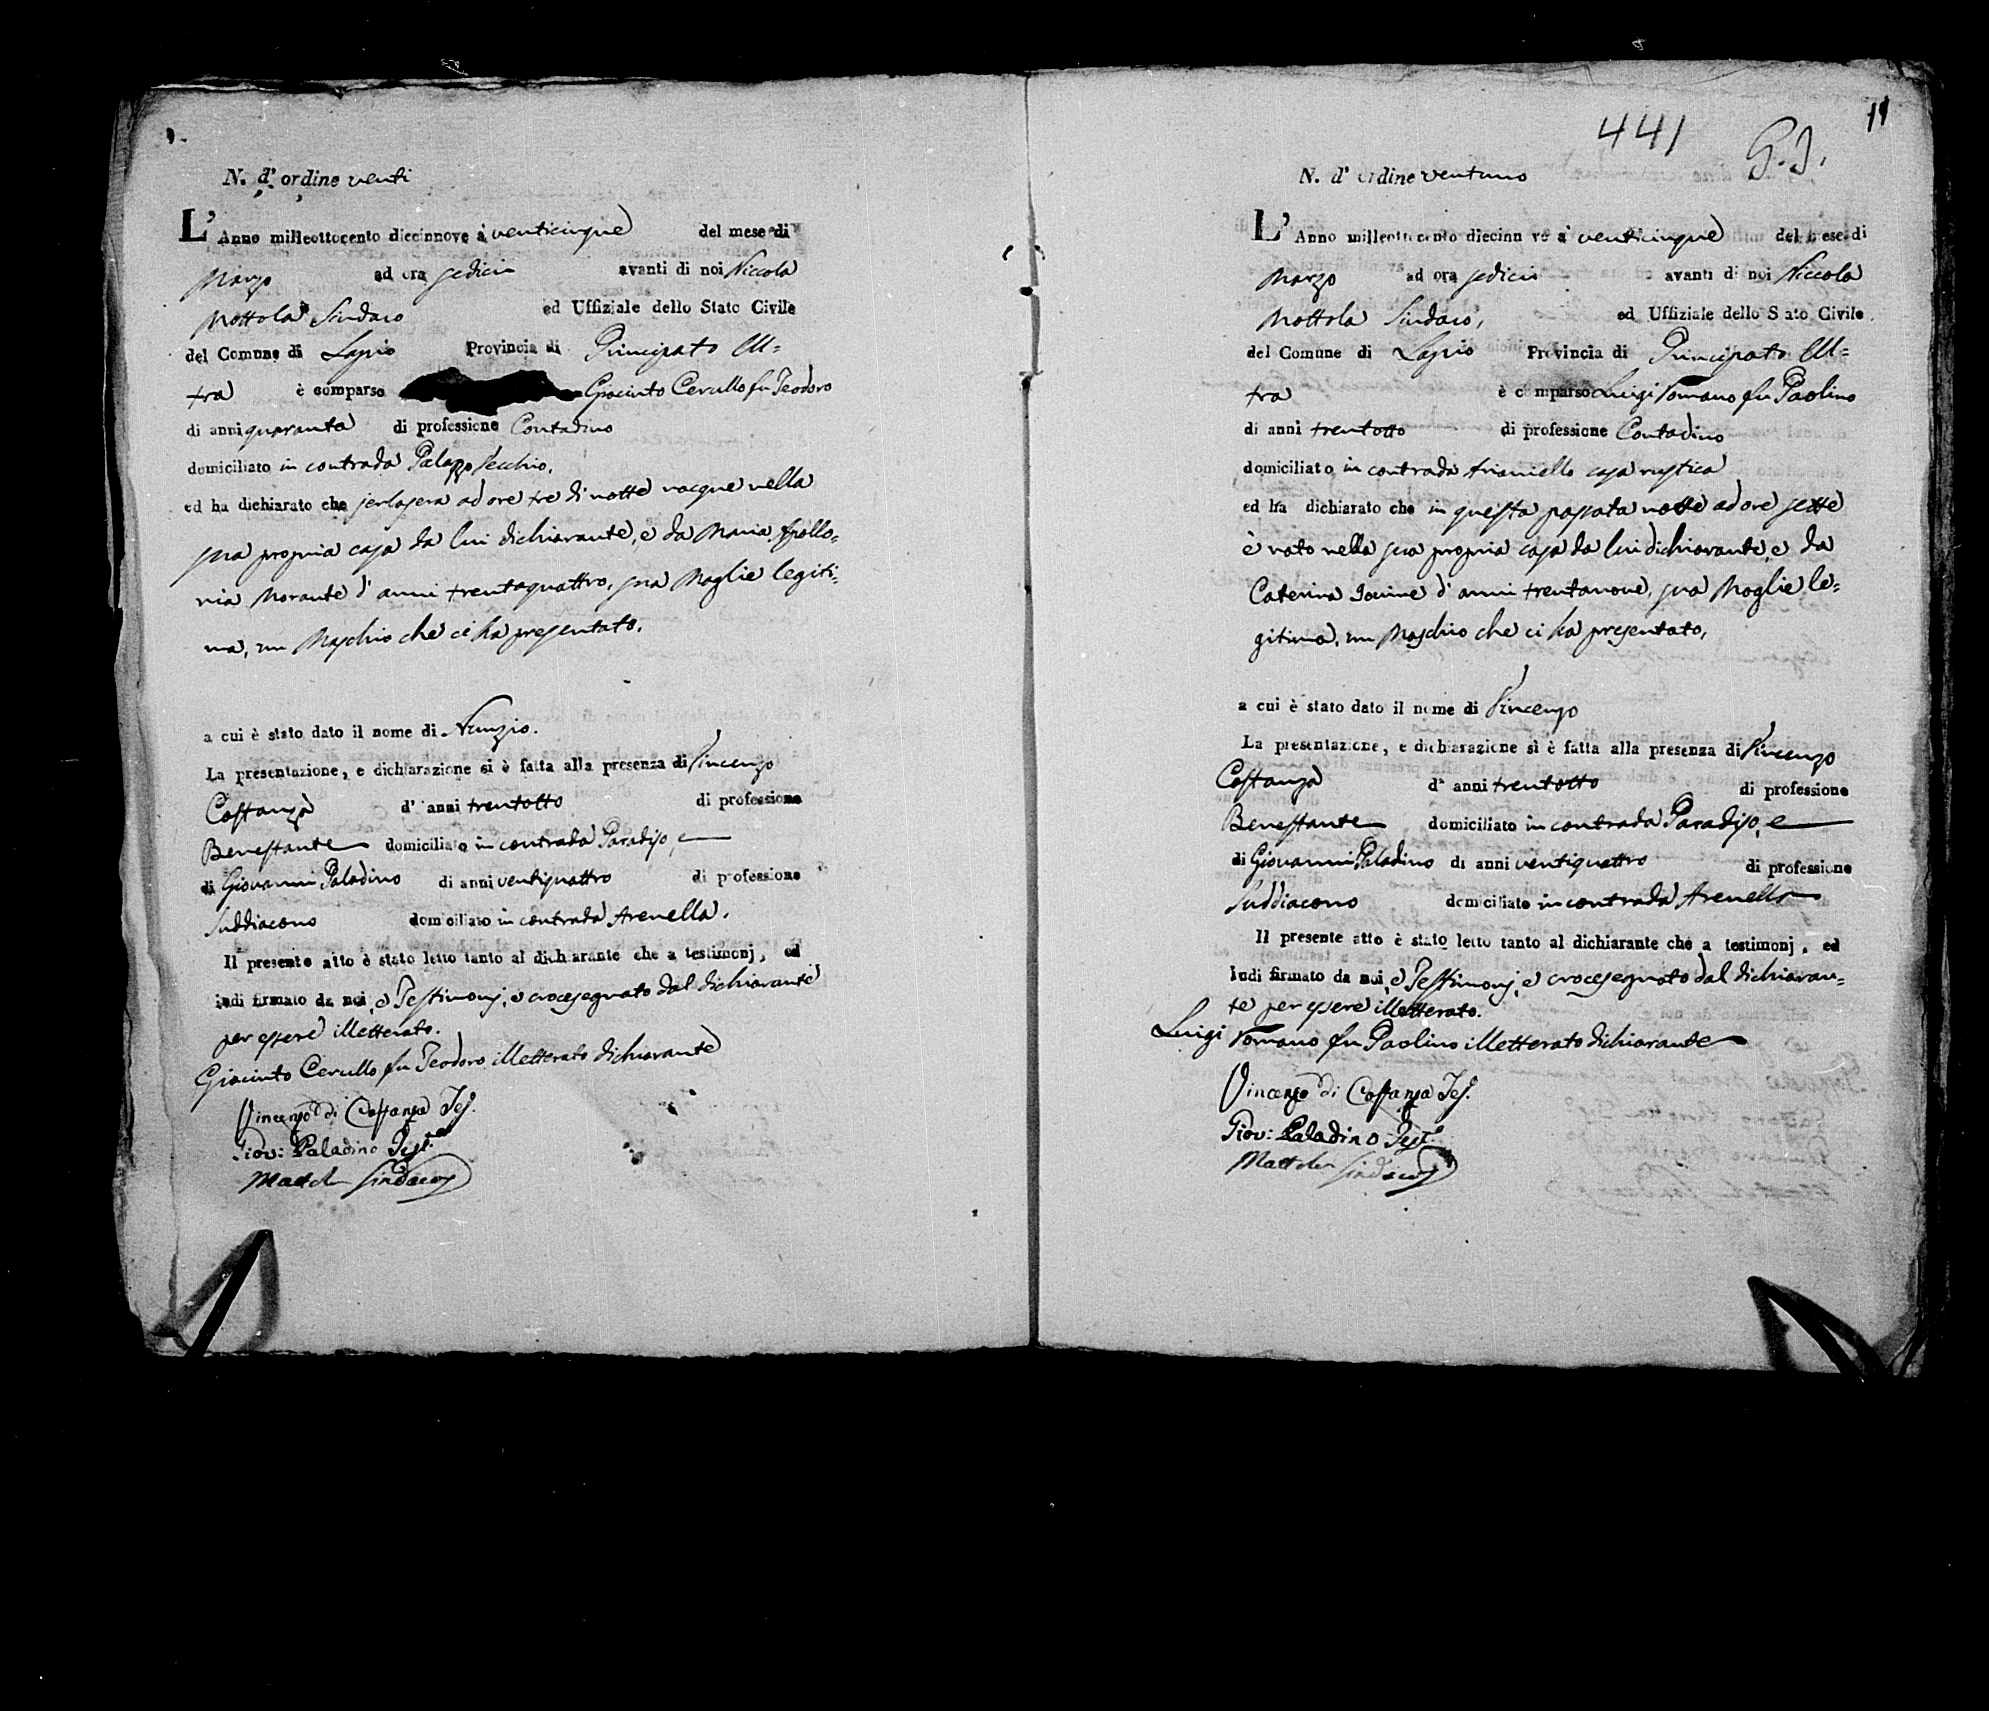 N. d' ordine venti
L' Anno milleottocento diecinnove à venticinque del mese di
Marzo ad ora sedici avanti di noi Niccola
Mottola Sindaco ed Uffiziale dello Stato Civile
del Comune di Lapio Provincia di Principato Ul=
tra è comparso Giacinto Cerullo fu Teodoro
di anni quaranta di professione Contadino
domiciliato in contrada Palazzo Vecchio,
ed ha dichiarato che jerlasera ad ore tre di notte nacque nella
sua propria casa da lui dichiarante, e da Maria Apollo=
nia Morante d' anni trentaquattro, sua Moglie legiti=
ma, un Maschio che ci ha presentato,
a cui è stato dato il nome di Nunzio.
La presentazione, e dichiarazione si è fatta alla presenza di Vincenzo
Costanza d' anni trentotto di professione
Benestante domiciliato in contrada Paradiso, e
di Giovanni Paladino di anni ventiquattro di professione
Suddiacono domiciliato in contrada Arenella.
Il presente atto è stato letto tanto al dichiarante che a testimonj, ed
indi firmato da noi, e Testimonj, e crocesegnato dal dichiarante
per essere illetterato.
Giacinto Cerullo fu Teodoro illetterato dichiarante
Vincenzo di Costanza Tes.
Giov: Paladino Test.e
Sindaco
441
G. I.
11
N. d' ordine ventuno
L' Anno milleottocento diecinnove à venticinque del mese di
Marzo ad ora sedici avanti di noi Niccola
Mottola Sindaco, ed Uffiziale dello Stato Civile
del Comune di Lapio Provincia di Principato Ul=
tra è comparso Luigi Romano fu Paolino
di anni trentotto di professione Contadino
domiciliato in contrada casa rustica
ed ha dichiarato che in questa passata notte ad ore sette
è nato nella sua propria casa da lui dichiarante, e da
Caterina d' anni trentanove, sua Moglie le=
gitima, un Maschio che ci ha presentato,
a cui è stato dato il nome di Vincenzo
La presentazione, e dichiarazione si è fatta alla presenza di Vincenzo
Costanza d' anni trentotto di professione
Benestante domiciliato in contrada Paradiso, e
di Giovanni Paladino di anni ventiquattro di professione
Suddiacono domiciliato in contrada Arenella
Il presente atto è stato letto tanto al dichiarante che a testimonj, ed
indi firmato da noi, e Testimonj, e crocesegnato dal dichiaran=
te per essere illetterato.
Luigi Romano fu Paolino illetterato dichiarante
Vincenzo di Costanza Tes.
Giov: Paladino Test.e
Sindaco